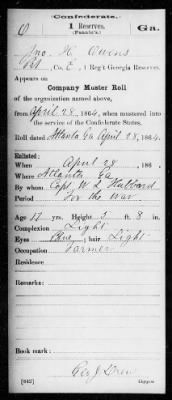 Confederate.
O 1 Reserves. Ga.
(Fannin's).
Jno. H. Owens
Pvt, Co. E, 1 Reg't Georgia Reserves.
Appears on
Company Muster Roll
of the organization named above,
from April 28, 1864, when mustered into
the service of the Confederate States.
Roll dated Atlanta Ga April 28, 1864.
Enlisted:
When April 28, 186 .
Where Atlanta Ga
By whom Capt. W L Hubbard
Period For the War
Age 17 yrs. Height 5 ft. 8 in.
Complexion Light
Eyes Blue; hair Light
Occupation Farmer
Residence
Remarks:
Book mark:
Geo J Drew
(642) Copyist.